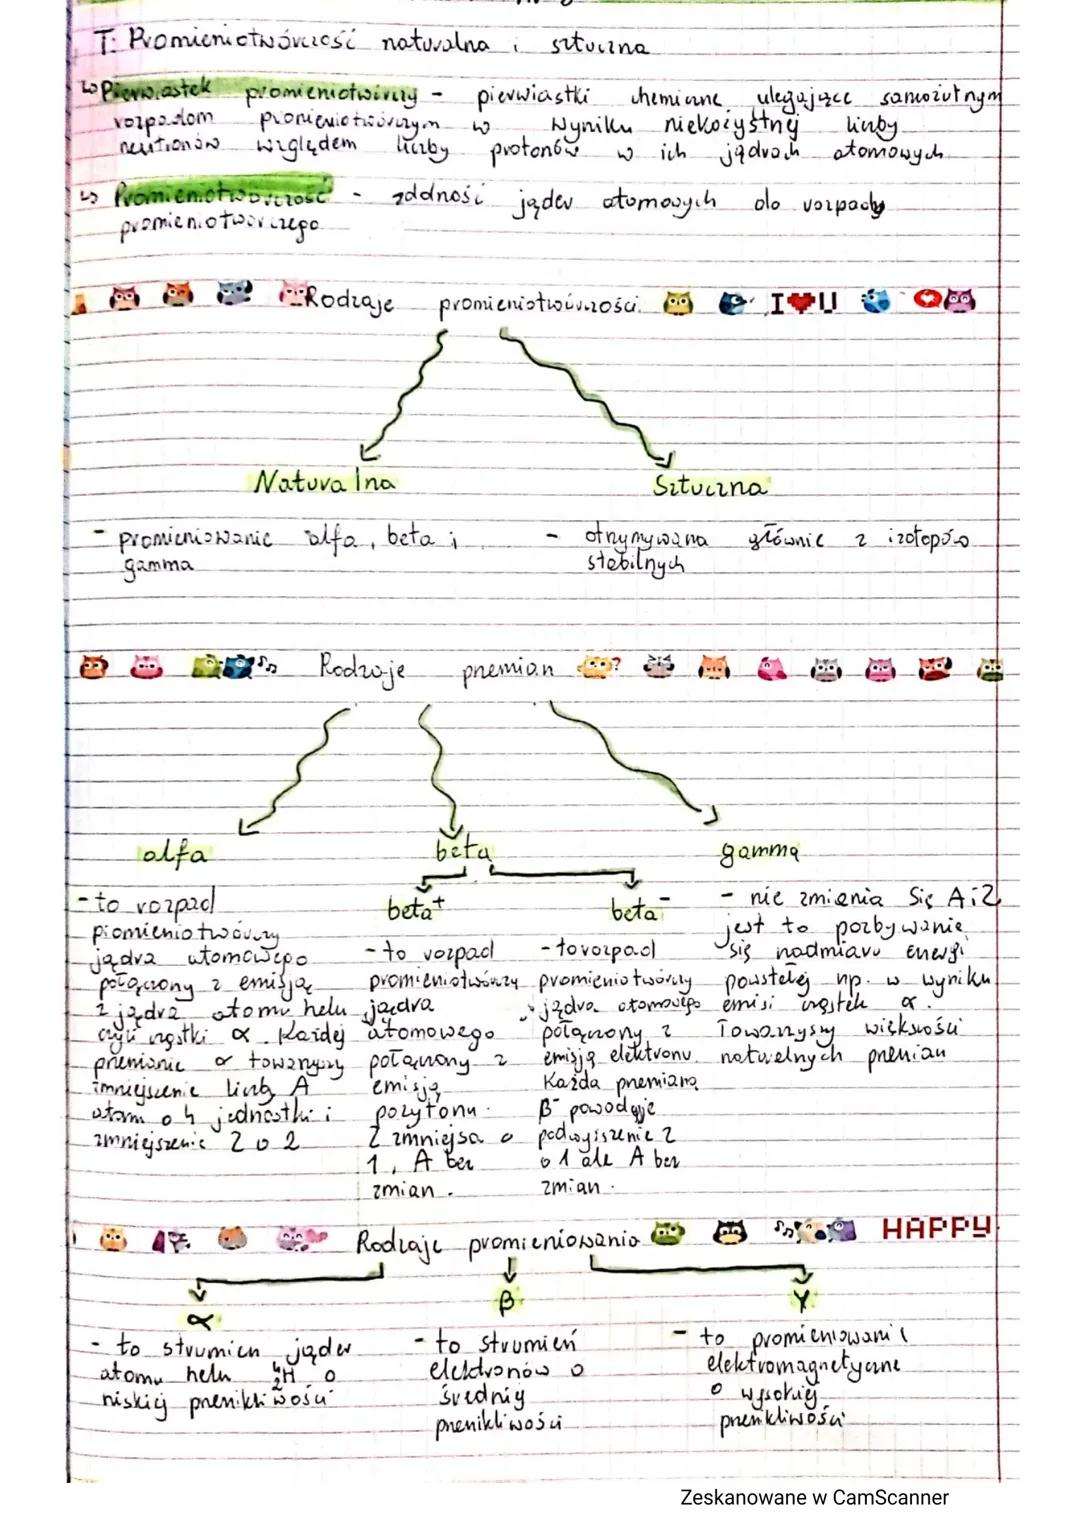 T: Promieniotwórczość naturalna i sztuczna
↳ Pierwiastek promieniotwórczy - pierwiastki chemiczne ulegające samorzutnym
rozpadom promieniotwórczym w wyniku niekożystnej liczby
neutronów względem liczby protonów w ich jądrach atomowych.
↳ Promieniotwórczość - zdolność jąder atomowych do rozpadu
promieniotwórczego.
Rodzaje promieniotwórczości. I❤U
Naturalna Sztuczna
- promieniowanie alfa, beta i
gamma
- otrzymywana głównie z izotopów
stabilnych
Rodzaje przemian
alfa beta gamma
beta⁺ beta⁻
- to rozpad
promieniotwórczy
jądra atomowego
połączony z emisją
z jądra atomu helu
czyli cząstki α. Każdej
przemianie α towarzyszy
zmniejszenie liczby A
atom o 4 jednostki i
zmniejszenie Z o 2
- to rozpad
promieniotwórczy
jądra
atomowego
połączony z
emisją
pozytonu.
Z zmniejsza o
1, A bez
zmian.
- to rozpad
promieniotwórczy
jądra atomowego
połączony z
emisją elektronu.
Każda przemiana
β⁻ powoduje
podwyższenie Z
o 1 ale A bez
zmian.
- nie zmienia się A i Z
jest to pozbywanie
się nadmiaru energi
powstałej np. w wyniku
emisi cząstek α.
Towarzyszy większości
naturalnych przemian
Rodzaje promieniowania HAPPY
α β γ
- to strumień jąder
atomu helu ⁴₂H o
niskiej przenikliwości
- to strumień
elektronów o
średniej
przenikliwości
- to promieniowanie
elektromagnetyczne
o wysokiej
przenikliwości
Zeskanowane w CamScanner